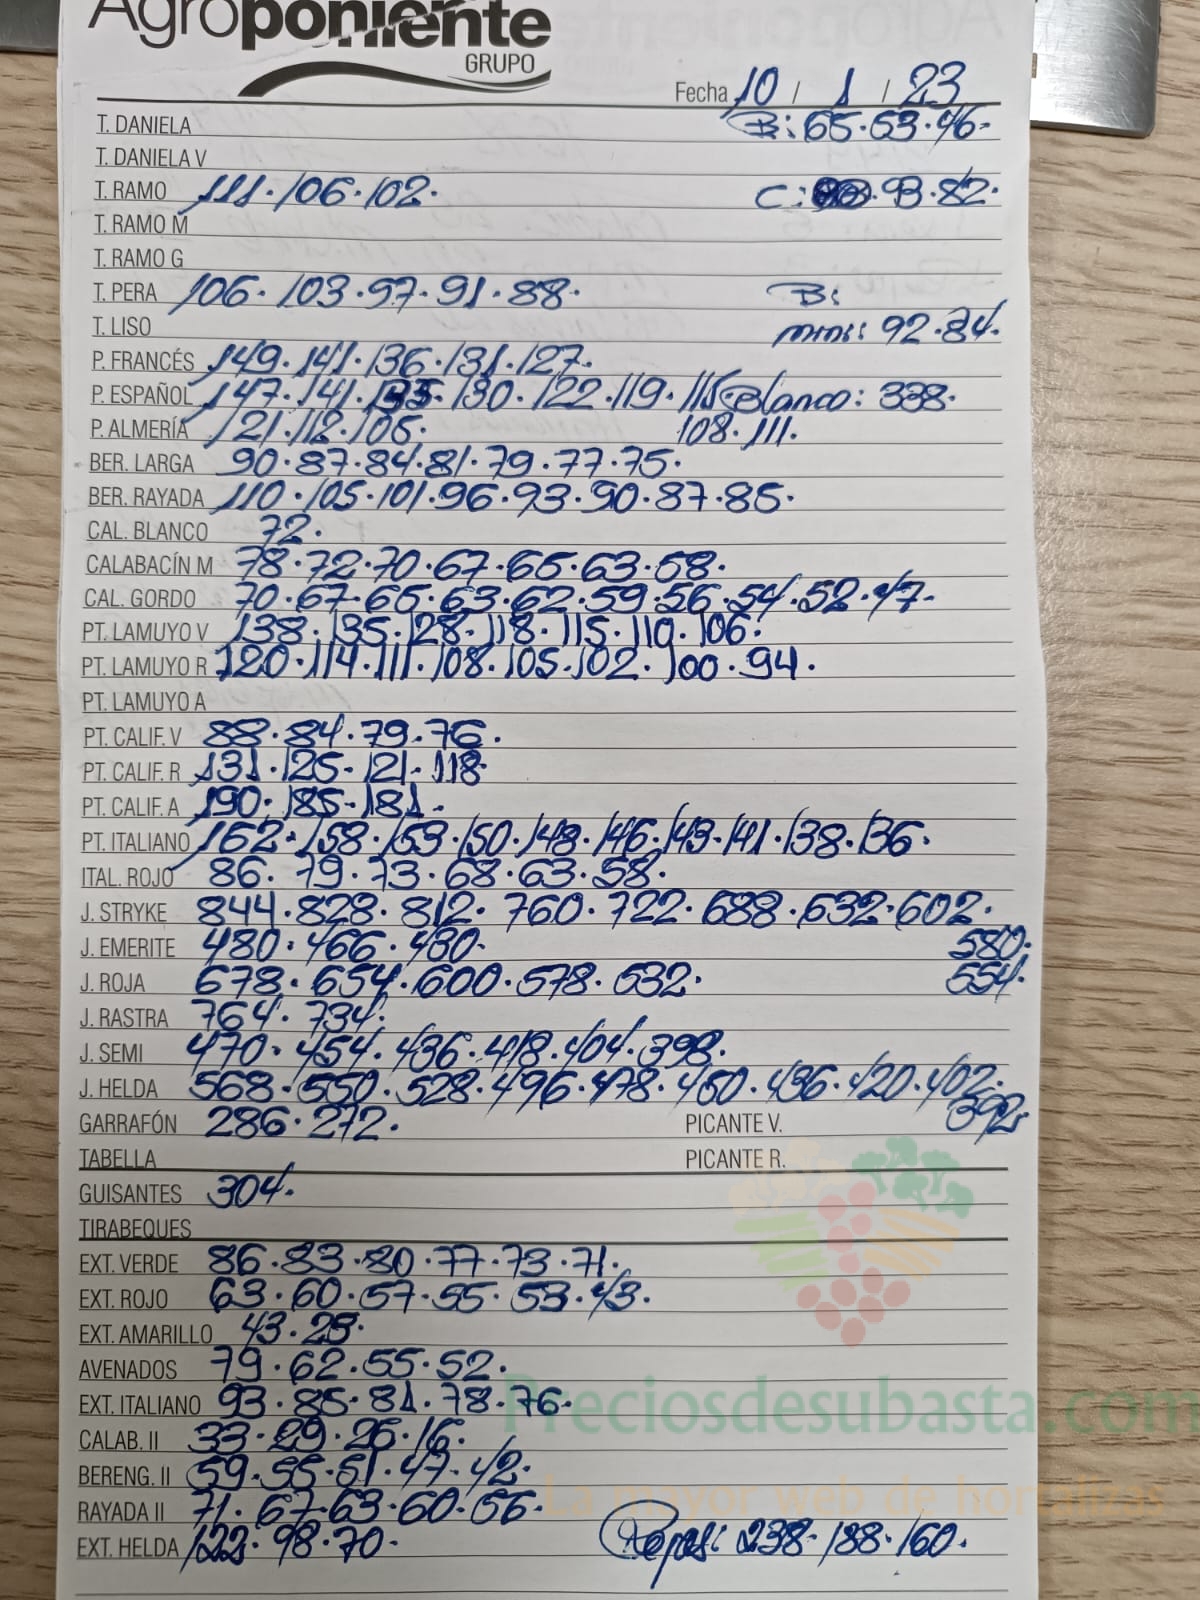 Agroponiente
GRUPO
Fecha 10 / 1 / 23
T. DANIELA B: 65.53.46-
T. DANIELA V
T. RAMO 111.106.102. C: 93.82.
T. RAMO M
T. RAMO G
T. PERA 106.103.97.91.88. B:
T. LISO mini: 92.84.
P. FRANCÉS 149.141.136.131.127.
P. ESPAÑOL 147.141.135.130.122.119.115 Blanco: 338.
P. ALMERÍA 121.112.105. 108.111.
BER. LARGA 90.87.84.81.79.77.75.
BER. RAYADA 110.105.101.96.93.90.87.85.
CAL. BLANCO 72.
CALABACÍN M 78.72.70.67.65.63.58.
CAL. GORDO 70.67.65.63.62.59.56.54.52.47-
PT. LAMUYO V 138.135.128.118.115.110.106.
PT. LAMUYO R 120.114.111.108.105.102.100.94.
PT. LAMUYO A
PT. CALIF. V 88.84.79.76.
PT. CALIF. R 131.125-121-118-
PT. CALIF. A 190.185-181-
PT. ITALIANO 162.158.153.150.148.146.143.141.138.136.
ITAL. ROJO 86.79.73.68.63.58.
J. STRYKE 844.828.812.760.722.688.632.602.
J. EMERITE 480.466.430- 580.
J. ROJA 678.654.600.578.532. 554.
J. RASTRA 764.734.
J. SEMI 470.454.436.418.404.398.
J. HELDA 568.550.528.496.478.450.436.420.402.
GARRAFÓN 286.272. PICANTE V. 392.
TABELLA PICANTE R.
GUISANTES 304.
TIRABEQUES
EXT. VERDE 86.83.80.77.73.71.
EXT. ROJO 63.60.57.55.53.43.
EXT. AMARILLO 43.25.
AVENADOS 79.62.55.52.
EXT. ITALIANO 93.85.81.78.76-
Preciosdesubasta.com
CALAB. II 33.29.26.16.
BERENG. II 59.55.51.47.42.
La mayor web de hortalizas
RAYADA II 71.67.63.60.56.
EXT. HELDA 122.98.70- Pepos: 238.188.160.